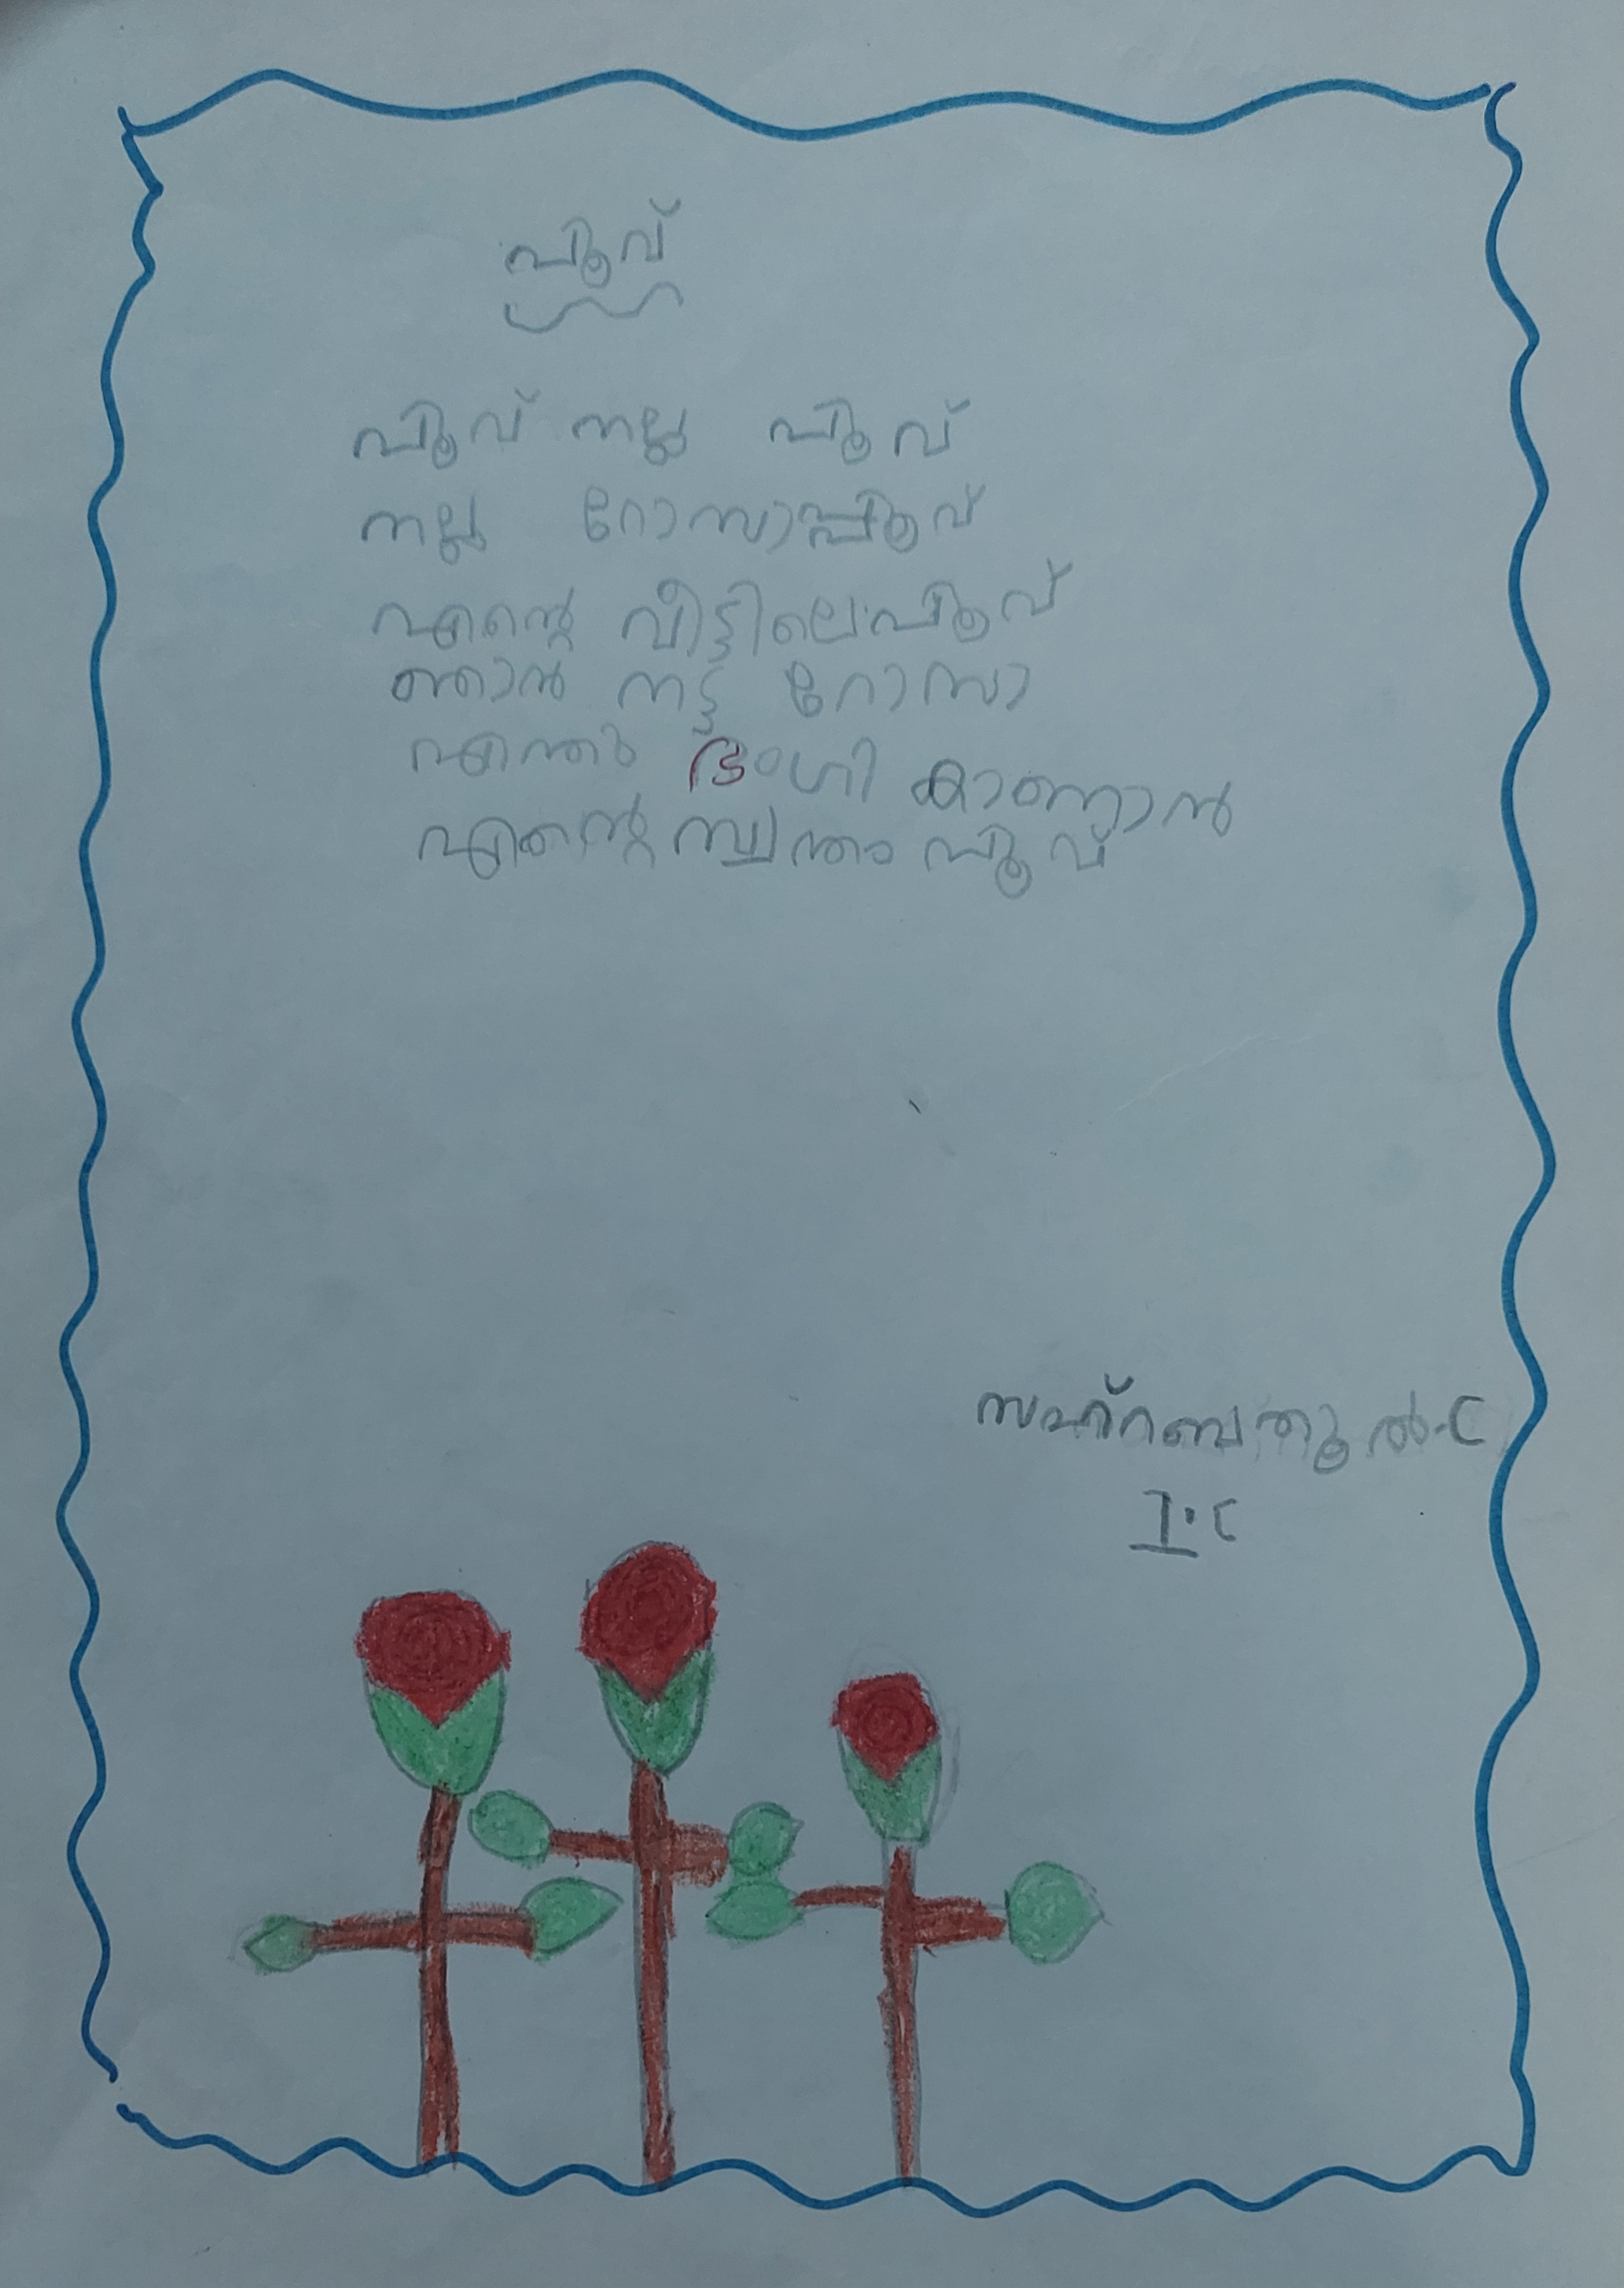 പൂവ്
പൂവ് നല്ല പൂവ്
നല്ല റോസാപ്പൂവ്
എന്റെ വീട്ടിലെപൂവ്
ഞാൻ നട്ട റോസാ
എന്തു ഭംഗി കാണാൻ
എന്റെ സ്വന്തം പൂവ്
സഹ്റബതൂൽ-C
I·C